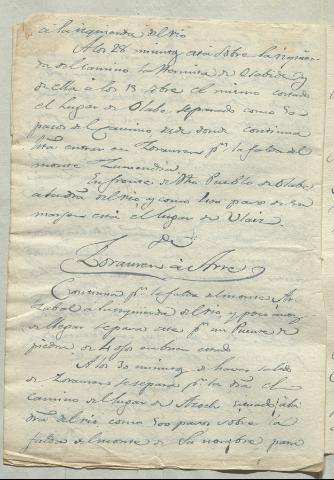 á la izquierda del rio
A los 28 minutos está sobre la izquier
da del camino la Hermita de
de ella á los 13 sobre el mismo costado
el lugar de Olabe separado como 50
pasos del Camino desde donde continua
hta entrar en Zorauren pr. la falda del
monte
En frente de dho Pueblo de Olabe
á la dra del rio y como 400 pasos de su
margen está el lugar de Olaiz
de
Zorauren á Arre
Continua pr. la falda del monte
á la izquierda del rio, y poco antes
de llegar se pasa este pr. un Puente de
piedra de 4 ojos en buen estado
A los 30 minutos de haver salido
de Zorauren se separa pr. la dra el
camino del lugar de Azoch situado á la
dra del rio como 500 pasos sobre la
falda del monte de su nombre, pasa